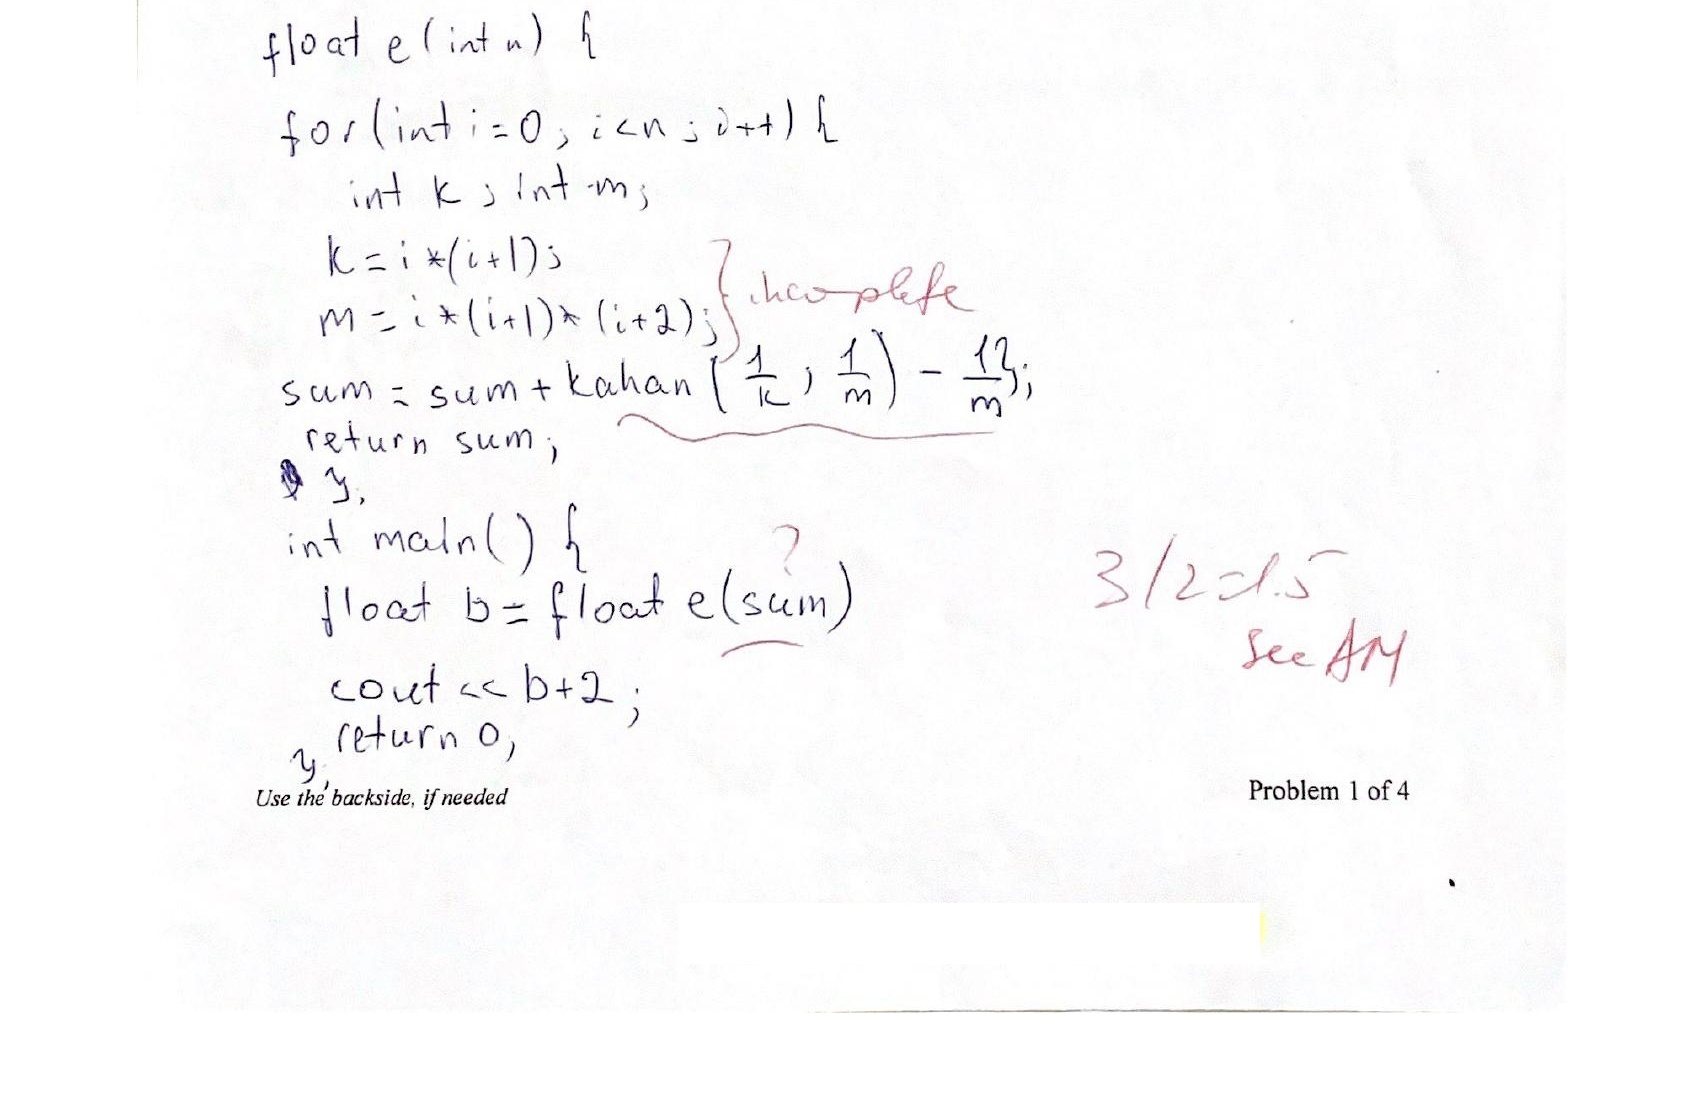 float e(int n) {
for(int i=0; i<n; i++) {
int k; int m;
k=i*(i+1);
m=i*(i+1)*(i+2);
incomplete
sum=sum+kahan(1/k, 1/m) - 1/m};
return sum;
},
int main() {
?
float b=float e(sum)
3/2=1.5
see AM
cout << b+2;
return 0,
},
Use the backside, if needed
Problem 1 of 4